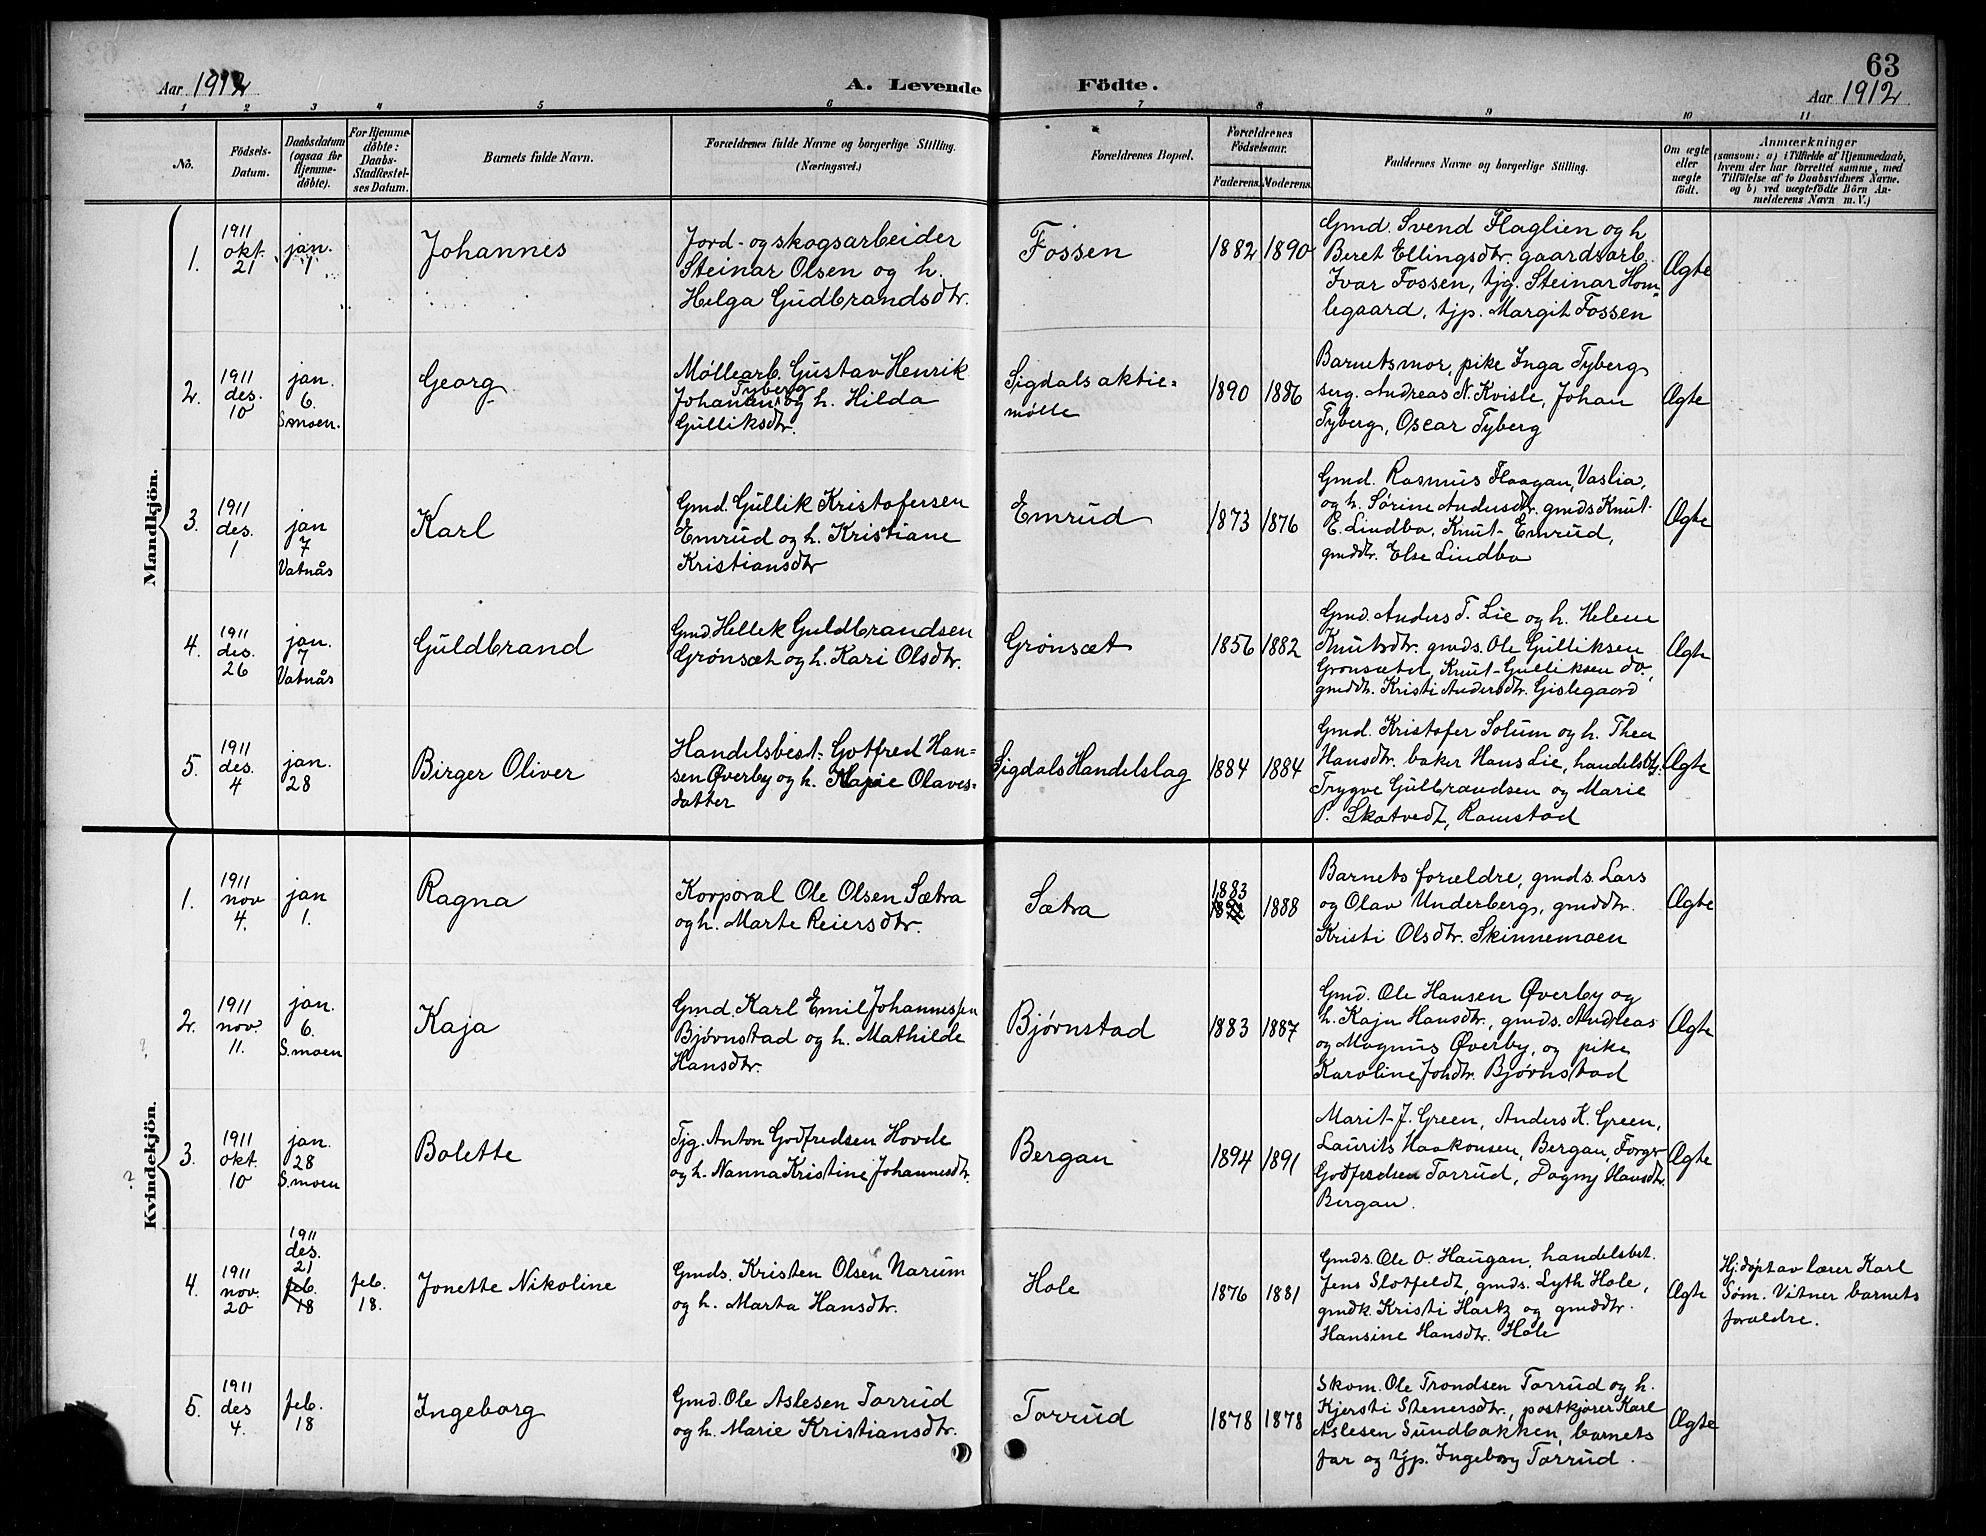 63
Aar 1912
A. Levende Födte.
Aar 1912
1 2 3 4 5 6 7 8 9 10 11
Nô.
Födsels-
Datum.
Daabsdatum
(ogsaa for
Hjemme-
döbte).
For Hjemme-
döbte:
Daabs-
Stadfæstel-
ses Datum.
Barnets fulde Navn.
Forældrenes fulde Navne og borgerlige Stilling.
(Næringsvei.)
Forældrenes Bopæl.
Forældrenes
Födselsaar.
Faderens. Moderens.
Faddernes Navne og borgerlige Stilling.
Om ægte
eller
uægte
født.
Anmærkninger
(saasom: a) i Tilfælde af Hjemmedaab,
hvem der har forrettet samme, med
Tilföielse af to Daabsvidners Navne.
og b) ved uægtefödte Börn An-
melderens Navn m. V.)
Mandkjön.
1.
1911
okt.
21
jan.
1
Johannes
Jord- og skogsarbeider
Steinar Olsen og h.
Helga Gudbrandsdtr.
Fossen
1882
1890
Gmd. Svend Flaglien og h
Beret Ellingsdtr. gaardsarb.
Ivar Fossen, tjg. Steinar Hom-
legaard, tjp. Margit Fossen
Ægte
2.
1911
des.
10
jan.
6.
S.moen.
Georg
Møllearb. Gustav Henrik
Tyberg
Johansen og h. Hilda
Gulliksdtr.
Sigdals aktie-
mølle
1890
1886
Barnets mor, pike Inga Tyberg
serg. Andreas N. Kvisle, Johan
Tyberg, Oscar Tyberg
Ægte
3.
1911
des.
1
jan
7
Vatnås
Karl
Gmd. Gullik Kristofersen
Emrud og h. Kristiane
Kristiansdtr
Emrud
1873
1876
Gmd. Rasmus Haagan, Vaslia,
og h. Sørine Andersdtr. gmds Knut
E. Lindbo, Knut Emrud,
gmddtr. Else Lindbo
Ægte
4.
1911
des.
26
jan.
7
Vatnås
Guldbrand
Gmd. Hellek Guldbrandsen
Grønsæt og h. Kari Olsdtr.
Grønsæt
1856
1882
Gmd. Anders T. Lie og h. Helene
Knutsdtr. gmds. Ole Gulliksen
Grønsæted, Knut Gulliksen do,
gmddt. Kristi Andersdtr. Gislegaard
Ægte
5.
1911
des.
4
jan.
28
Birger Oliver
Handelsbest. Gotfred Han-
sen Øverby og h. Marie Olaves-
datter
Sigdals Handelslag
1884
1884
Gmd. Kristofer Solum og h. Thea
Hansdtr. baker Hans Lie, handelsbtj.
Trygve Gulbrandsen og Marie
P. Skatvedt, Ramstad
Ægte
Kvindekjön.
1.
1911
nov
4.
jan
1.
Ragna
Korporal Ole Olsen Sætra
og h. Marte Reiersdtr.
Sætra
1883
1888
Barnets forældre, gmds. Lars
og Olav Underberg, gmddtr.
Kristi Olsdtr. Skinnemoen
Ægte
2.
1911
nov.
11.
jan.
6.
S.moen
Kaja
Gmd. Karl Emil Johannessen
Bjørnstad og h. Mathilde
Hansdtr.
Bjørnstad
1883
1887
Gmd. Ole Hansen Øverby og
h. Kaja Hansdtr., gmds. Andreas
og Magnus Øverby, og pike
Karoline Johdtr. Bjørnstad
Ægte
?
3.
1911
okt.
10
jan.
28
S.moen
Bolette
Tjg. Anton Godfredsen Hovde
og h. Nanna Kristine Johannesdtr.
Bergan
1894
1891
Marit J. Green, Anders K. Green,
Laurits Haakonsen, Bergan, Torger
Godfredsen Torrud, Dagny Hansdtr.
Bergan.
Ægte
?
4.
1911
nov.
20
1911
des.
21
feb.
18
feb.
18.
Jonette Nikoline
Gmds. Kristen Olsen Narum
og h. Marta Hansdtr.
Hole
1876
1881
Gmds. Ole O. Haugan, handelsbet.
Jens Slotfeldt, gmds. Lyth Hole,
gmdk Kristi Hartz og gmddtr.
Hansine Hansdtr. Hole
Ægte
Hj.døpt av lærer Karl
Søm. Vitner barnets
forældre.
5.
1911
des
4.
feb.
18
Ingeborg
Gmd. Ole Aslesen Torrud
og h. Marie Kristiansdtr.
Torrud
1878
1878
Skom. Ole Trondsen Torrud og h.
Kjersti Stenersdtr., postkjører Karl
Aslesen Sundbakken, barnets
far og tjp. Ingeborg Torrud.
Ægte